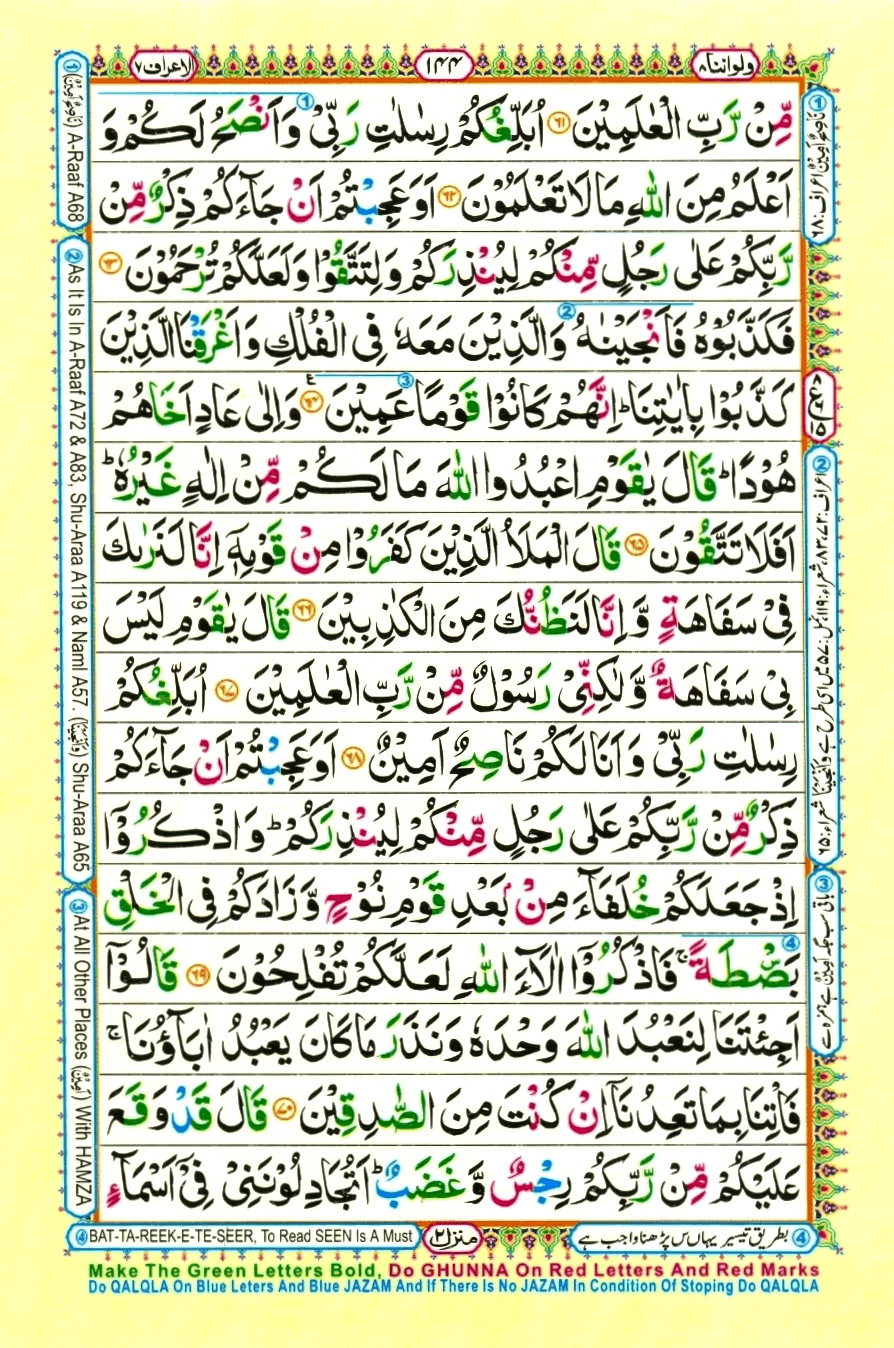 ولواننا ٨
١٤٤
الاعراف ٧
مِّنْ رَّبِّ الْعٰلَمِيْنَ ۝٦١ اُبَلِّغُكُمْ رِسٰلٰتِ رَبِّيْ وَاَنْصَحُ لَكُمْ وَ
اَعْلَمُ مِنَ اللّٰهِ مَا لَا تَعْلَمُوْنَ ۝٦٢ اَوَعَجِبْتُمْ اَنْ جَآءَكُمْ ذِكْرٌ مِّنْ
رَّبِّكُمْ عَلٰى رَجُلٍ مِّنْكُمْ لِيُنْذِرَكُمْ وَلِتَتَّقُوْا وَلَعَلَّكُمْ تُرْحَمُوْنَ ۝٦٣
فَكَذَّبُوْهُ فَاَنْجَيْنٰهُ وَالَّذِيْنَ مَعَهٗ فِى الْفُلْكِ وَاَغْرَقْنَا الَّذِيْنَ
كَذَّبُوْا بِاٰيٰتِنَا ؕ اِنَّهُمْ كَانُوْا قَوْمًا عَمِيْنَ ۝٦٤ وَاِلٰى عَادٍ اَخَاهُمْ
هُوْدًا ؕ قَالَ يٰقَوْمِ اعْبُدُوا اللّٰهَ مَا لَكُمْ مِّنْ اِلٰهٍ غَيْرُهٗ ؕ
اَفَلَا تَتَّقُوْنَ ۝٦٥ قَالَ الْمَلَاُ الَّذِيْنَ كَفَرُوْا مِنْ قَوْمِهٖۤ اِنَّا لَنَرٰىكَ
فِيْ سَفَاهَةٍ وَّاِنَّا لَنَظُنُّكَ مِنَ الْكٰذِبِيْنَ ۝٦٦ قَالَ يٰقَوْمِ لَيْسَ
بِيْ سَفَاهَةٌ وَّلٰكِنِّيْ رَسُوْلٌ مِّنْ رَّبِّ الْعٰلَمِيْنَ ۝٦٧ اُبَلِّغُكُمْ
رِسٰلٰتِ رَبِّيْ وَاَنَا لَكُمْ نَاصِحٌ اَمِيْنٌ ۝٦٨ اَوَعَجِبْتُمْ اَنْ جَآءَكُمْ
ذِكْرٌ مِّنْ رَّبِّكُمْ عَلٰى رَجُلٍ مِّنْكُمْ لِيُنْذِرَكُمْ ؕ وَاذْكُرُوْۤا
اِذْ جَعَلَكُمْ خُلَفَآءَ مِنْۢ بَعْدِ قَوْمِ نُوْحٍ وَّزَادَكُمْ فِى الْخَلْقِ
بَصْۜطَةً ۚ فَاذْكُرُوْۤا اٰلَآءَ اللّٰهِ لَعَلَّكُمْ تُفْلِحُوْنَ ۝٦٩ قَالُوْۤا
اَجِئْتَنَا لِنَعْبُدَ اللّٰهَ وَحْدَهٗ وَنَذَرَ مَا كَانَ يَعْبُدُ اٰبَآؤُنَا ۚ
فَاْتِنَا بِمَا تَعِدُنَاۤ اِنْ كُنْتَ مِنَ الصّٰدِقِيْنَ ۝٧٠ قَالَ قَدْ وَقَعَ
عَلَيْكُمْ مِّنْ رَّبِّكُمْ رِجْسٌ وَّغَضَبٌ ؕ اَتُجَادِلُوْنَنِيْ فِيْۤ اَسْمَآءٍ
① (نَاصِحٌ اَمِيْنٌ) A-Raaf A68
② As It Is In A-Raaf A72 & A83, Shu-Araa A119 & Naml A57. (وَاَنْجَيْنَا) Shu-Araa A65
③ At All Other Places (اٰمِنِيْنَ) With HAMZA
① نَاصِحٌ اَمِيْنٌ اعراف: ٦٨
② اعراف: ٧٢، ٨٣، شعراء: ١١٩، نمل: ٥٧ میں اسی طرح ہے وَاَنْجَيْنَا شعراء: ٦٥
④ بطریق تیسیر یہاں س پڑھنا واجب ہے
منزل ٢
④ BAT-TA-REEK-E-TE-SEER, To Read SEEN Is A Must
Make The Green Letters Bold, Do GHUNNA On Red Letters And Red Marks
Do QALQLA On Blue Leters And Blue JAZAM And If There Is No JAZAM In Condition Of Stoping Do QALQLA